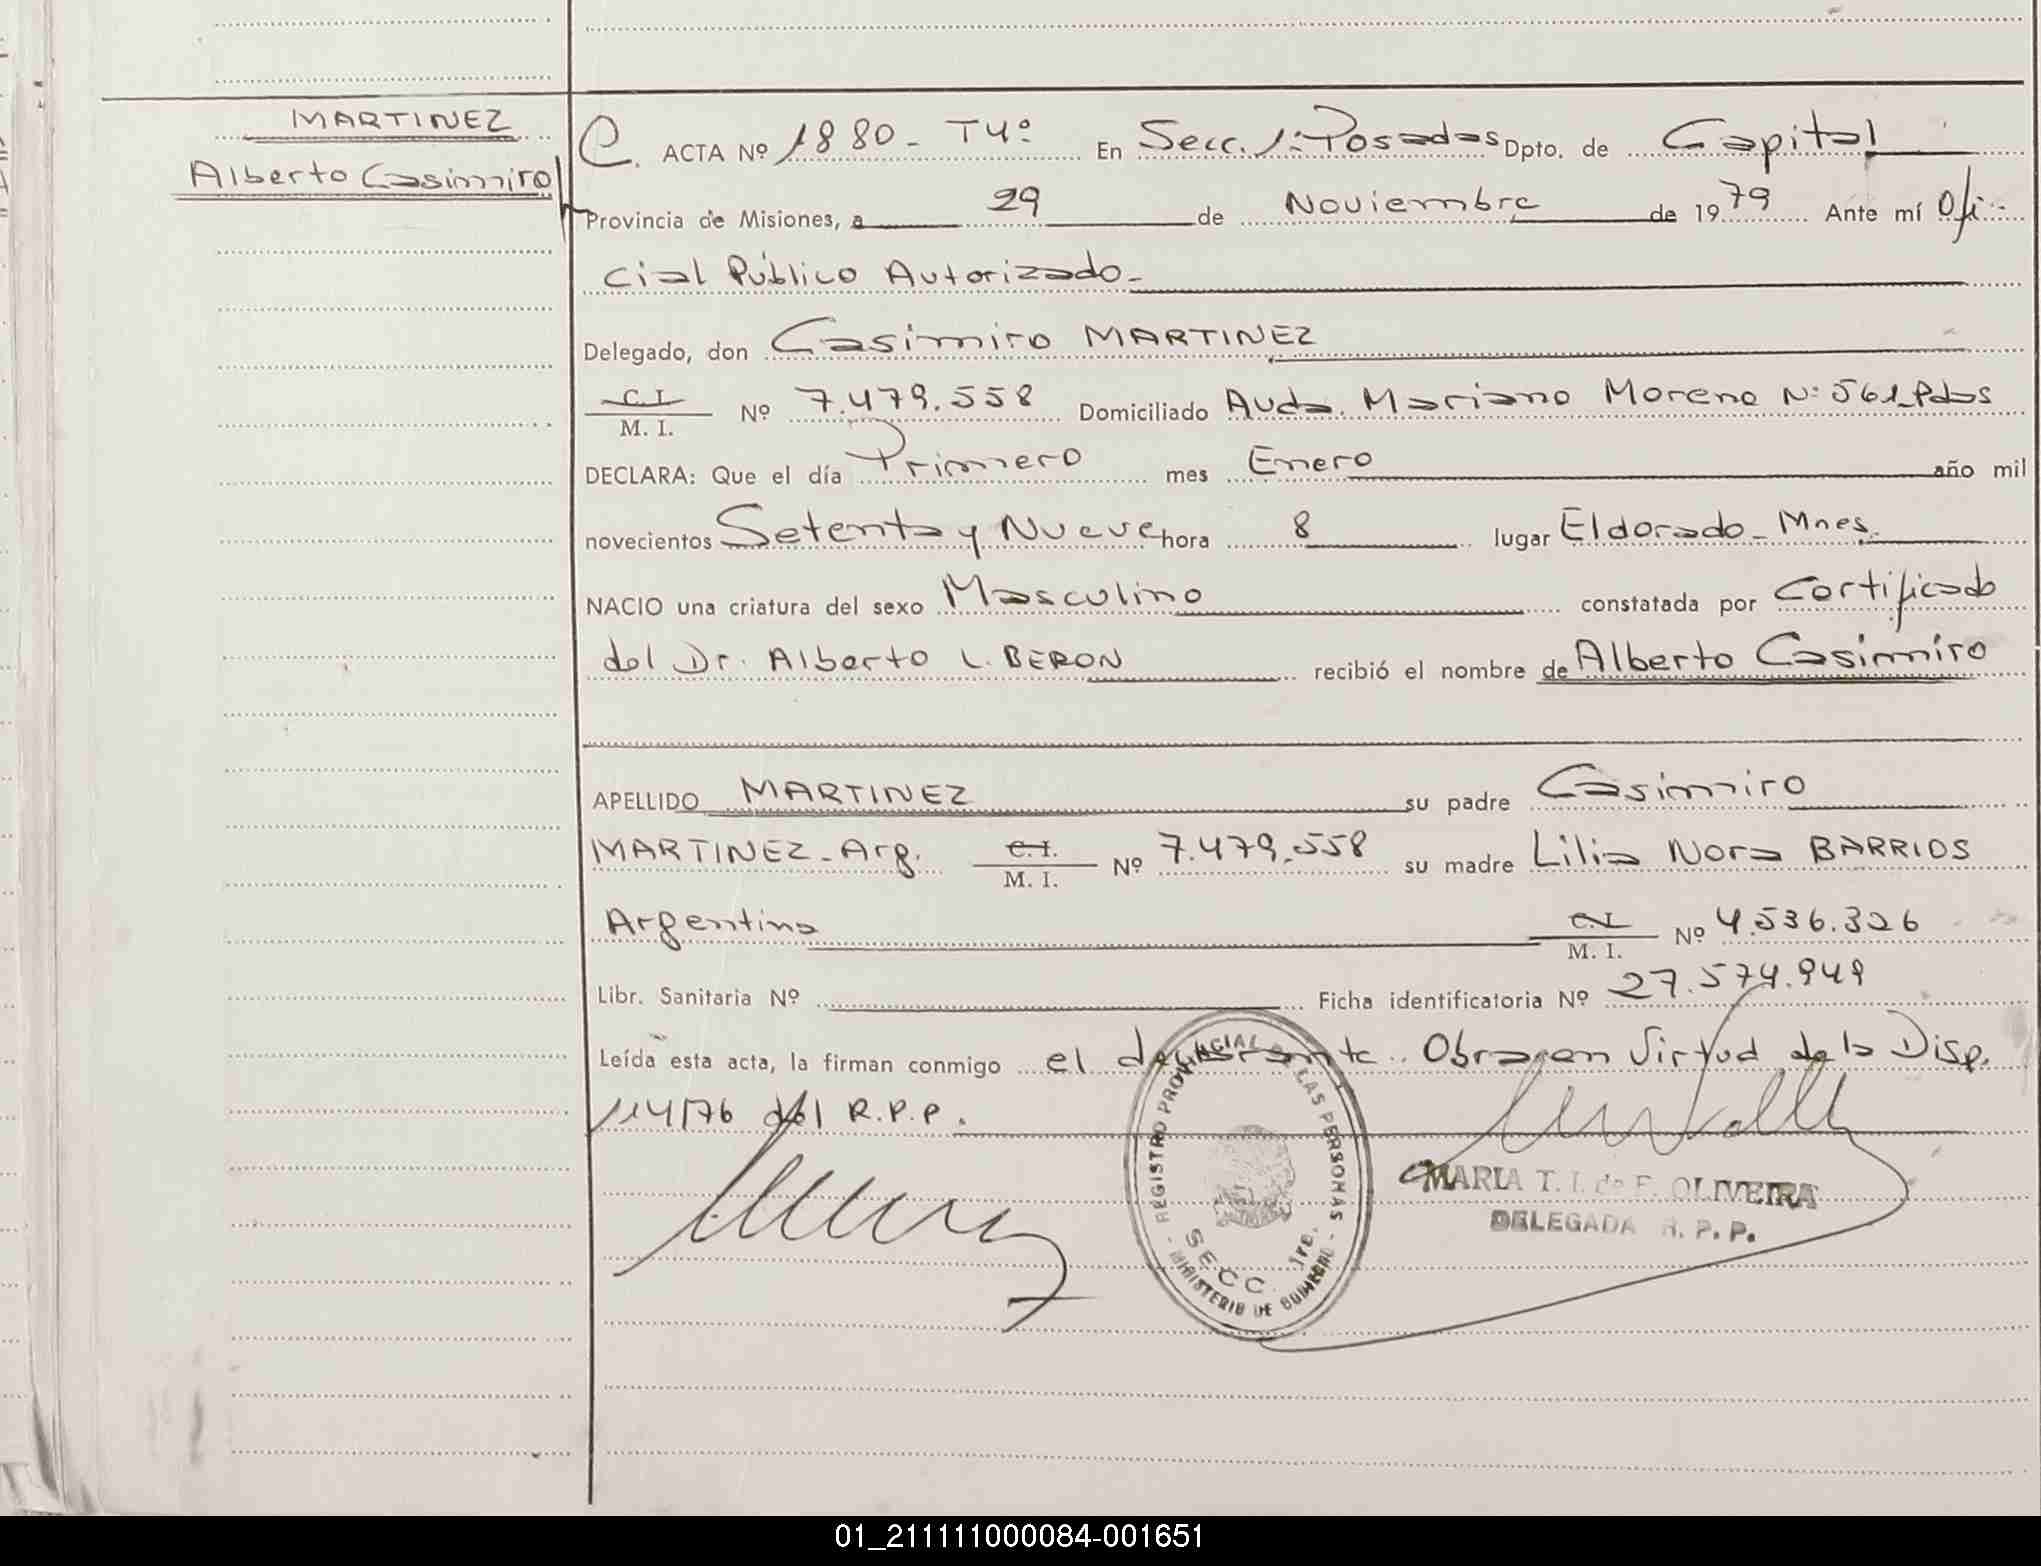 MARTINEZ
Alberto Casimiro
C. ACTA Nº 1880 - T4º En Secc. 1ª Posadas Dpto. de Capital
Provincia de Misiones, a 29 de Noviembre de 1979 Ante mí Ofi-
cial Público Autorizado-
Delegado, don Casimiro MARTINEZ
C.I. M. I. Nº 7.479.558 Domiciliado Avda. Mariano Moreno Nº 561 Pdas
DECLARA: Que el día Primero mes Enero año mil
novecientos Setenta y Nueve hora 8 lugar Eldorado - Mnes.
NACIO una criatura del sexo Masculino constatada por Certificado
del Dr. Alberto L. BERON recibió el nombre de Alberto Casimiro
APELLIDO MARTINEZ su padre Casimiro
MARTINEZ - Arg. C.I. M. I. Nº 7.479.558 su madre Lilia Nora BARRIOS
Argentina C.I. M. I. Nº 4.536.326
Libr. Sanitaria Nº Ficha identificatoria Nº 27.574.949
Leída esta acta, la firman conmigo el declarante. Obra en Virtud de la Disp.
114/76 del R.P.P.
REGISTRO PROVINCIAL DE LAS PERSONAS
SECC. 1ra.
- MINISTERIO DE GOBIERNO -
MARIA T. I. de F. OLIVEIRA
DELEGADA R. P. P.
01_211111000084-001651